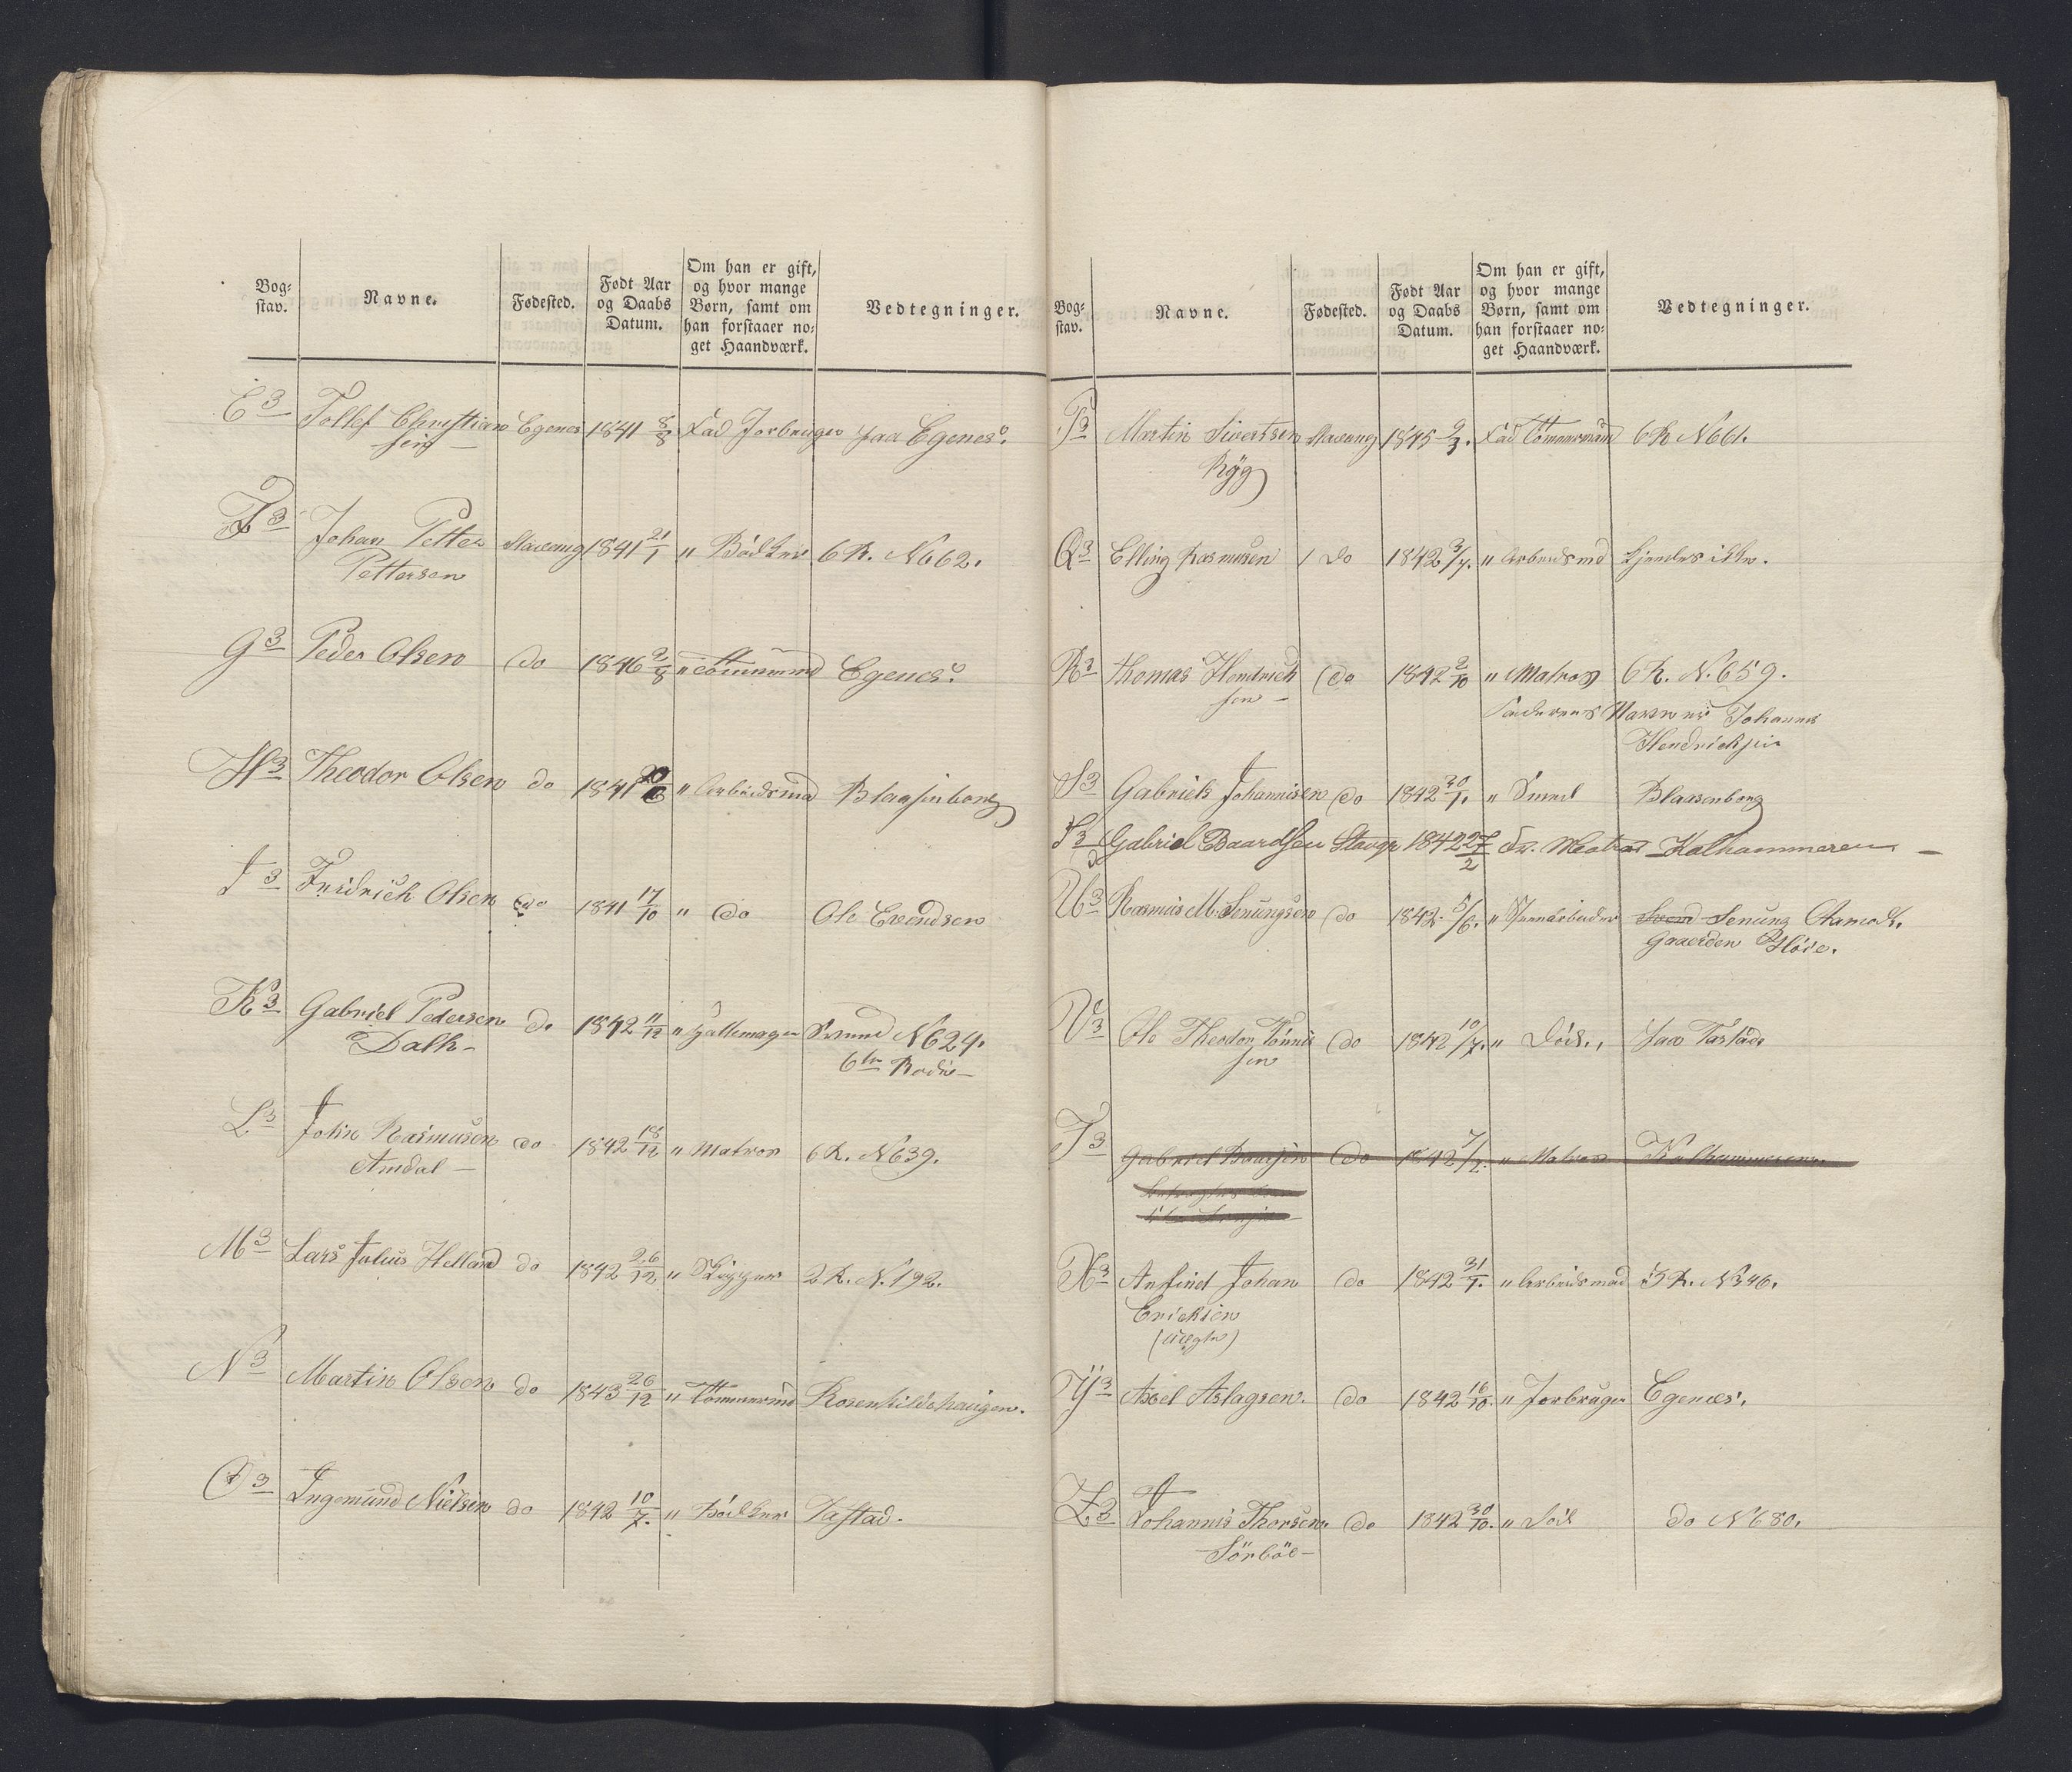 Bog-
stav.
Navne.
Fødested.
Født Aar
og Daabs
Datum.
Om han er gift,
og hvor mange
Børn, samt om
han forstaaer no-
get Haandværk.
Vedtegninger.
E 3 Tollef Christian Egenes 1841 8/8 Fad Jorbruger paa Egenes.
sen
F 3 Johan Petter Stavang 1841 21/1 " Bödker 6 R. N 662.
Pettersen
G 3 Peder Olsen do 1846 2/8 " Tömmermd Egenes.
H 3 Theodor Olsen do 1841 " Arbeidsmd Blaasenborg
I 3 Fridrich Olsen do 1841 17/10 " do Ole Evendsen
K 3 Gabriel Pedersen do 1842 11/12 " N 624.
Dalh 6te Rode
L 3 John Rasmusen do 1842 18/12 " Matros 6 R. N 639.
Amdal
M 3 Lars Julius Helland do 1842 26/12 " 2 R. N. 192.
N 3 Martin Olsen do 1843 26/12 " Tömmermd Rosenkildehaugen.
O 3 Ingemund Nielsen do 1842 10/7. " Bödker Tastad.
Bog-
stav.
Navne.
Fødested.
Født Aar
og Daabs
Datum.
Om han er gift,
og hvor mange
Børn, samt om
han forstaaer no-
get Haandværk.
Vedtegninger.
P 3 Martin Sivertsen Stavang 1845 9/3. Fad Tömmermand 6 R N 661.
Ryg
Q 3 Elling Rasmusen do 1842 3/7. " Arbeidsmd kjendes ikke.
R 3 Thomas Hendrich do 1842 2/10 " Matros 6 R. N. 659.
sen Faderens Navn er Johannes
Hendrichsen
S 3 Gabriels Johannisen do 1842 30/1. " Smed Blaasenborg
T 3 Gabriel Baardsen Stavgr 1842 27/2 Matros Kalhammeren
U 3 Rasmus M. Senungsen do 1842. 5/6. " Svend Senung Aamodt.
Gaarden Kløve.
V 3 Ole Theodor Tönnes do 1842 10/7. " Död., paa Tastad
sen
T 3 Gabriel Baarsen do 1842 7/2. " Matros Kalhammeren
X 3 Anfind Johan do 1842 31/1. " Arbeidsmad 5 R. N 346.
Ericksen
(uægte)
Y 3 Axel Aslagsen. do 1842 16/10. " Jorbruger Egenæs.
Z 3 Johannis Thorsen. do 1842 30/10. " Död do N 680.
Sörböe